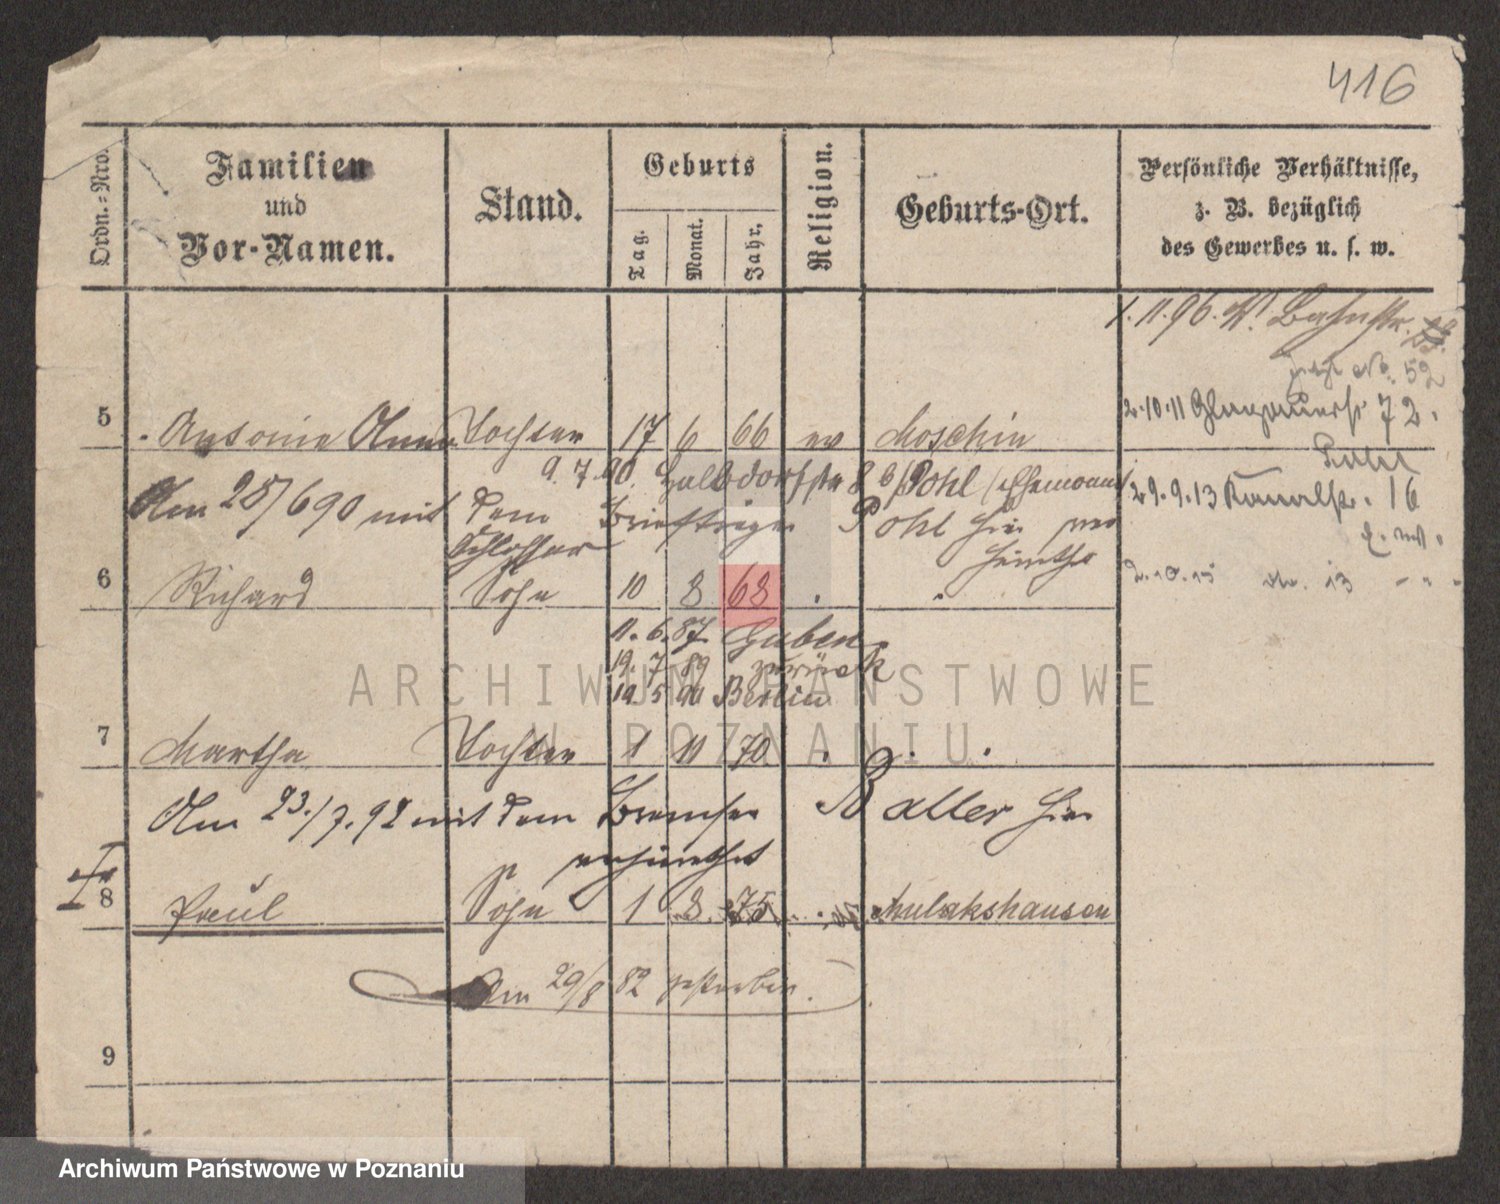 416
Ordn.-Nro.
Familien
und
Vor-Namen.
Stand.
Geburts
Tag.
Monat.
Jahr.
Religion.
Geburts-Ort.
Persönliche Verhältnisse,
z. B. bezüglich
des Gewerbes u. s. w.
1. 11. 96. Bahnstr.
No. 52
5 Antonie Anna Tochter 17 6 66 ev Moschin
2.10.11 Glogauerstr 72.
9. 7. 90. Halbdorfstr 8 b/Pohl /Ehemann
29.9.13 Kanalstr. 16
Am 25/6 90 mit dem Briefträger Pohl hier ver
Schlosser
6 Richard Sohn 10 8 68
2.10.15 13
11. 6. 87. Guben.
19. 7 89 zurück
19. 5 90 Berlin
7 Martha Tochter 1 11 70
Am 23./7. 92 mit dem Bremser Baller hier
verheirathet
8 Paul Sohn 1 8 75 Mulakshausen
Am 29/8 82 gestorben.
9
ARCHIWUM PAŃSTWOWE
W POZNANIU
Archiwum Państwowe w Poznaniu